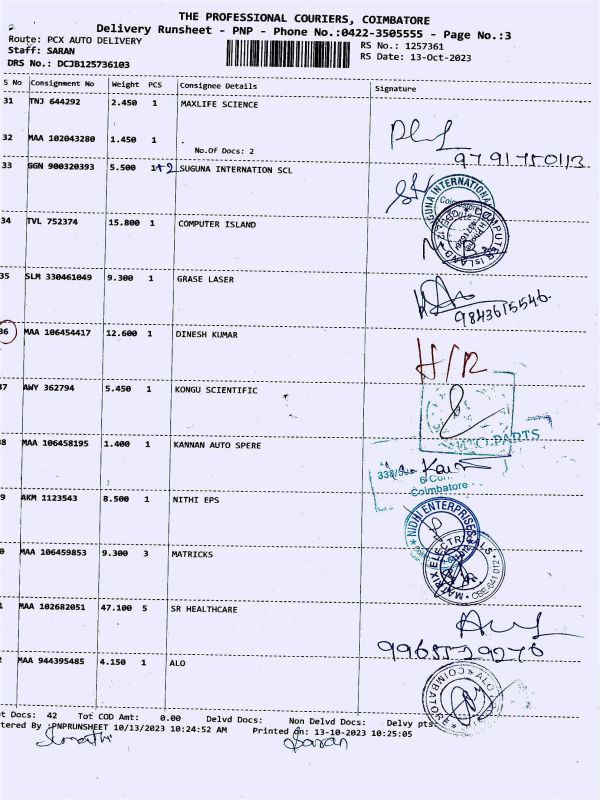 THE PROFESSIONAL COURIERS, COIMBATORE
Delivery Runsheet - PNP - Phone No.:0422-3505555 - Page No.:3
Route: PCX AUTO DELIVERY
Staff: SARAN
RS No.: 1257361
DRS No.: DCJB125736103
RS Date: 13-Oct-2023
S No Consignment No Weight PCS Consignee Details Signature
31 TNJ 644292 2.450 1 MAXLIFE SCIENCE
32 MAA 102043280 1.450 1
No.Of Docs: 2
9791750113
33 GGN 900320393 5.500 1+2 SUGUNA INTERNATION SCL
SUGUNA INTERNATIONAL
34 TVL 752374 15.800 1 COMPUTER ISLAND
COMPUTER ISLAND
35 SLM 330461049 9.300 1 GRASE LASER
9843615546
36 MAA 106454417 12.600 1 DINESH KUMAR
H/R
37 AWY 362794 5.450 1 KONGU SCIENTIFIC
O PARTS
38 MAA 106458195 1.400 1 KANNAN AUTO SPERE
Coimbatore
39 AKM 1123543 8.500 1 NITHI EPS
NIDHI ENTERPRISES
0 MAA 106459853 9.300 3 MATRICKS
MATRIX ELECTRICALS CBE-641 012
1 MAA 102682051 47.100 5 SR HEALTHCARE
9965529276
2 MAA 944395485 4.150 1 ALO
ALO COIMBATORE
t Docs: 42 Tot COD Amt: 0.00 Delvd Docs: Non Delvd Docs: Delvy pts:
tered By :PNPRUNSHEET 10/13/2023 10:24:52 AM Printed on: 13-10-2023 10:25:05
Saran